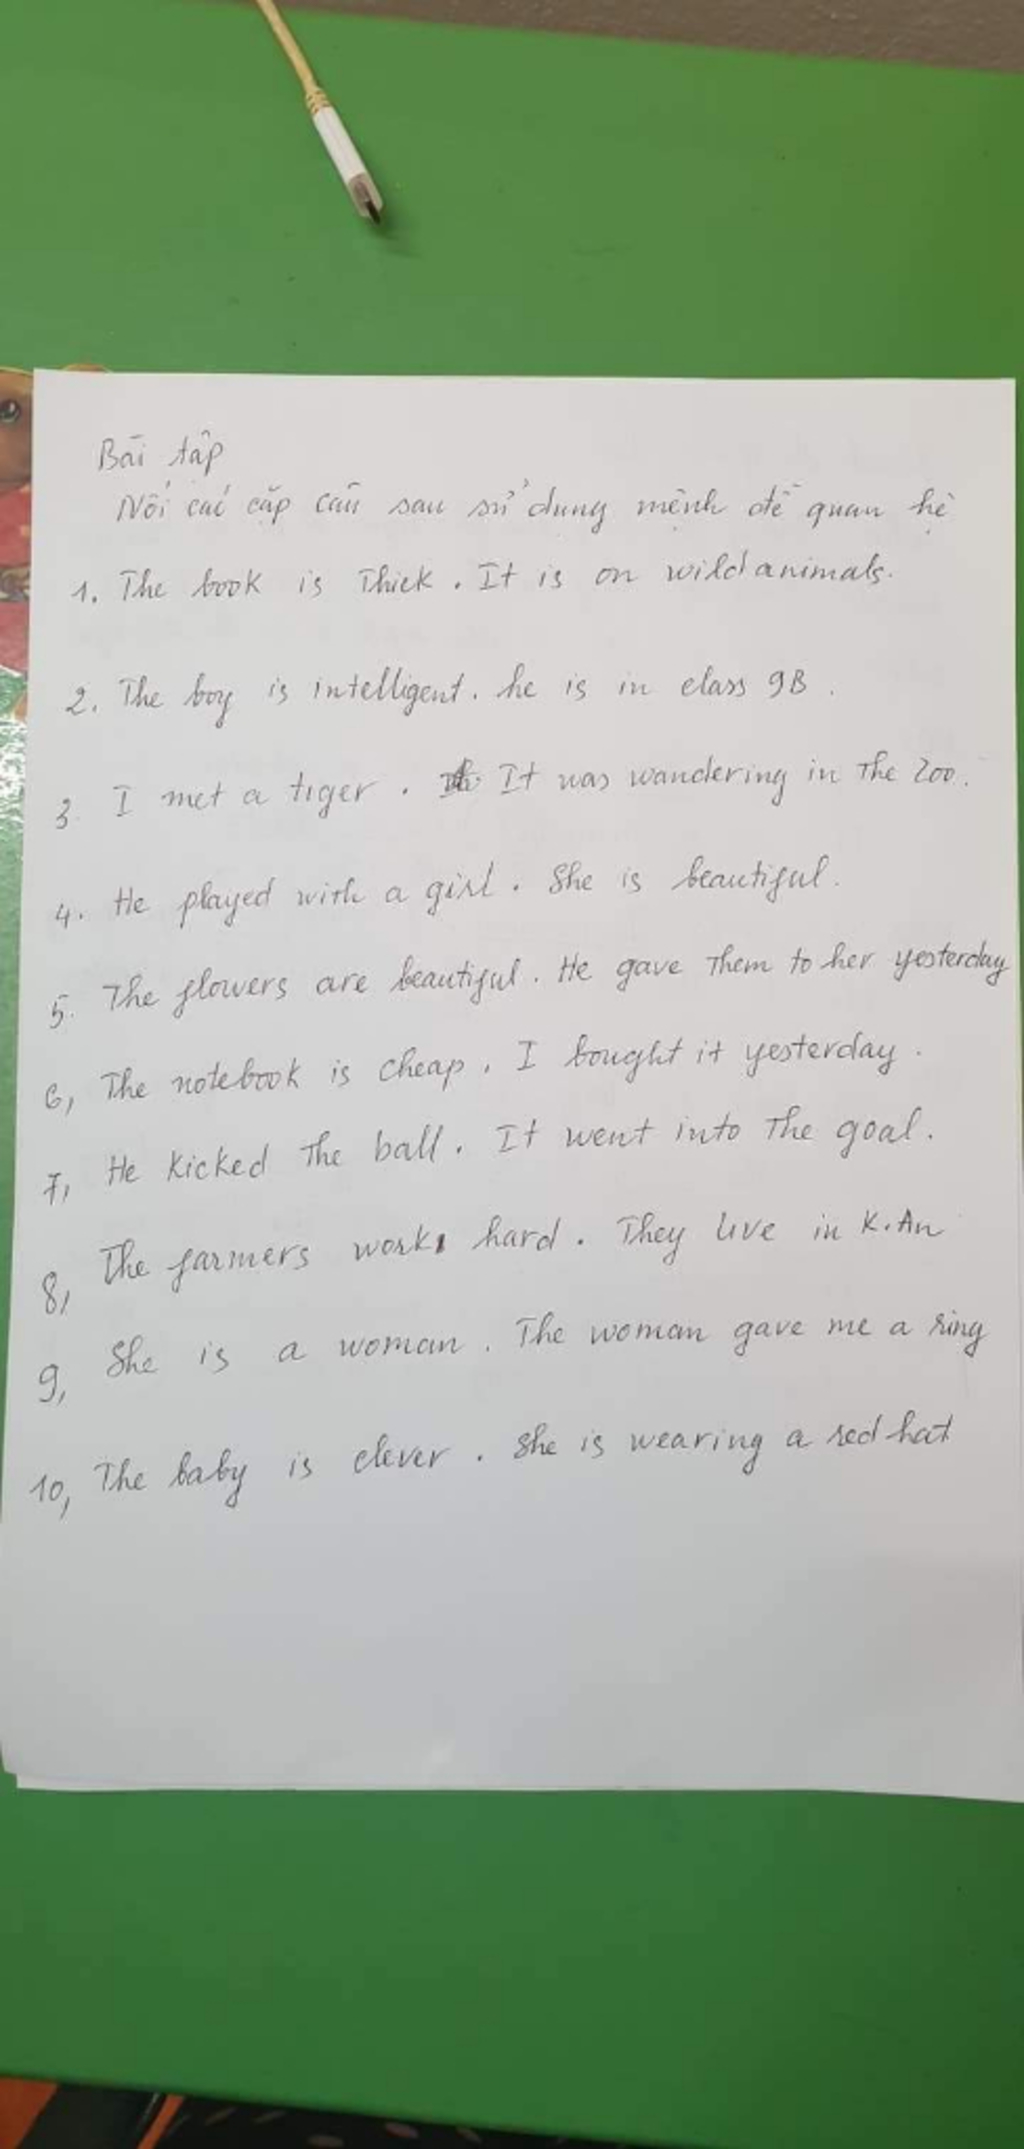 Bài tập
Nối các cặp câu sau sử dụng mệnh đề quan hệ
1. The book is thick. It is on wild animals.
2. The boy is intelligent. he is in class 9B.
3. I met a tiger. It was wandering in the zoo.
4. He played with a girl. She is beautiful.
5. The flowers are beautiful. He gave them to her yesterday
6, The notebook is cheap. I bought it yesterday.
7, He kicked the ball. It went into the goal.
8, The farmers work hard. They live in K.An
9, She is a woman. The woman gave me a ring
10, The baby is clever. She is wearing a red hat